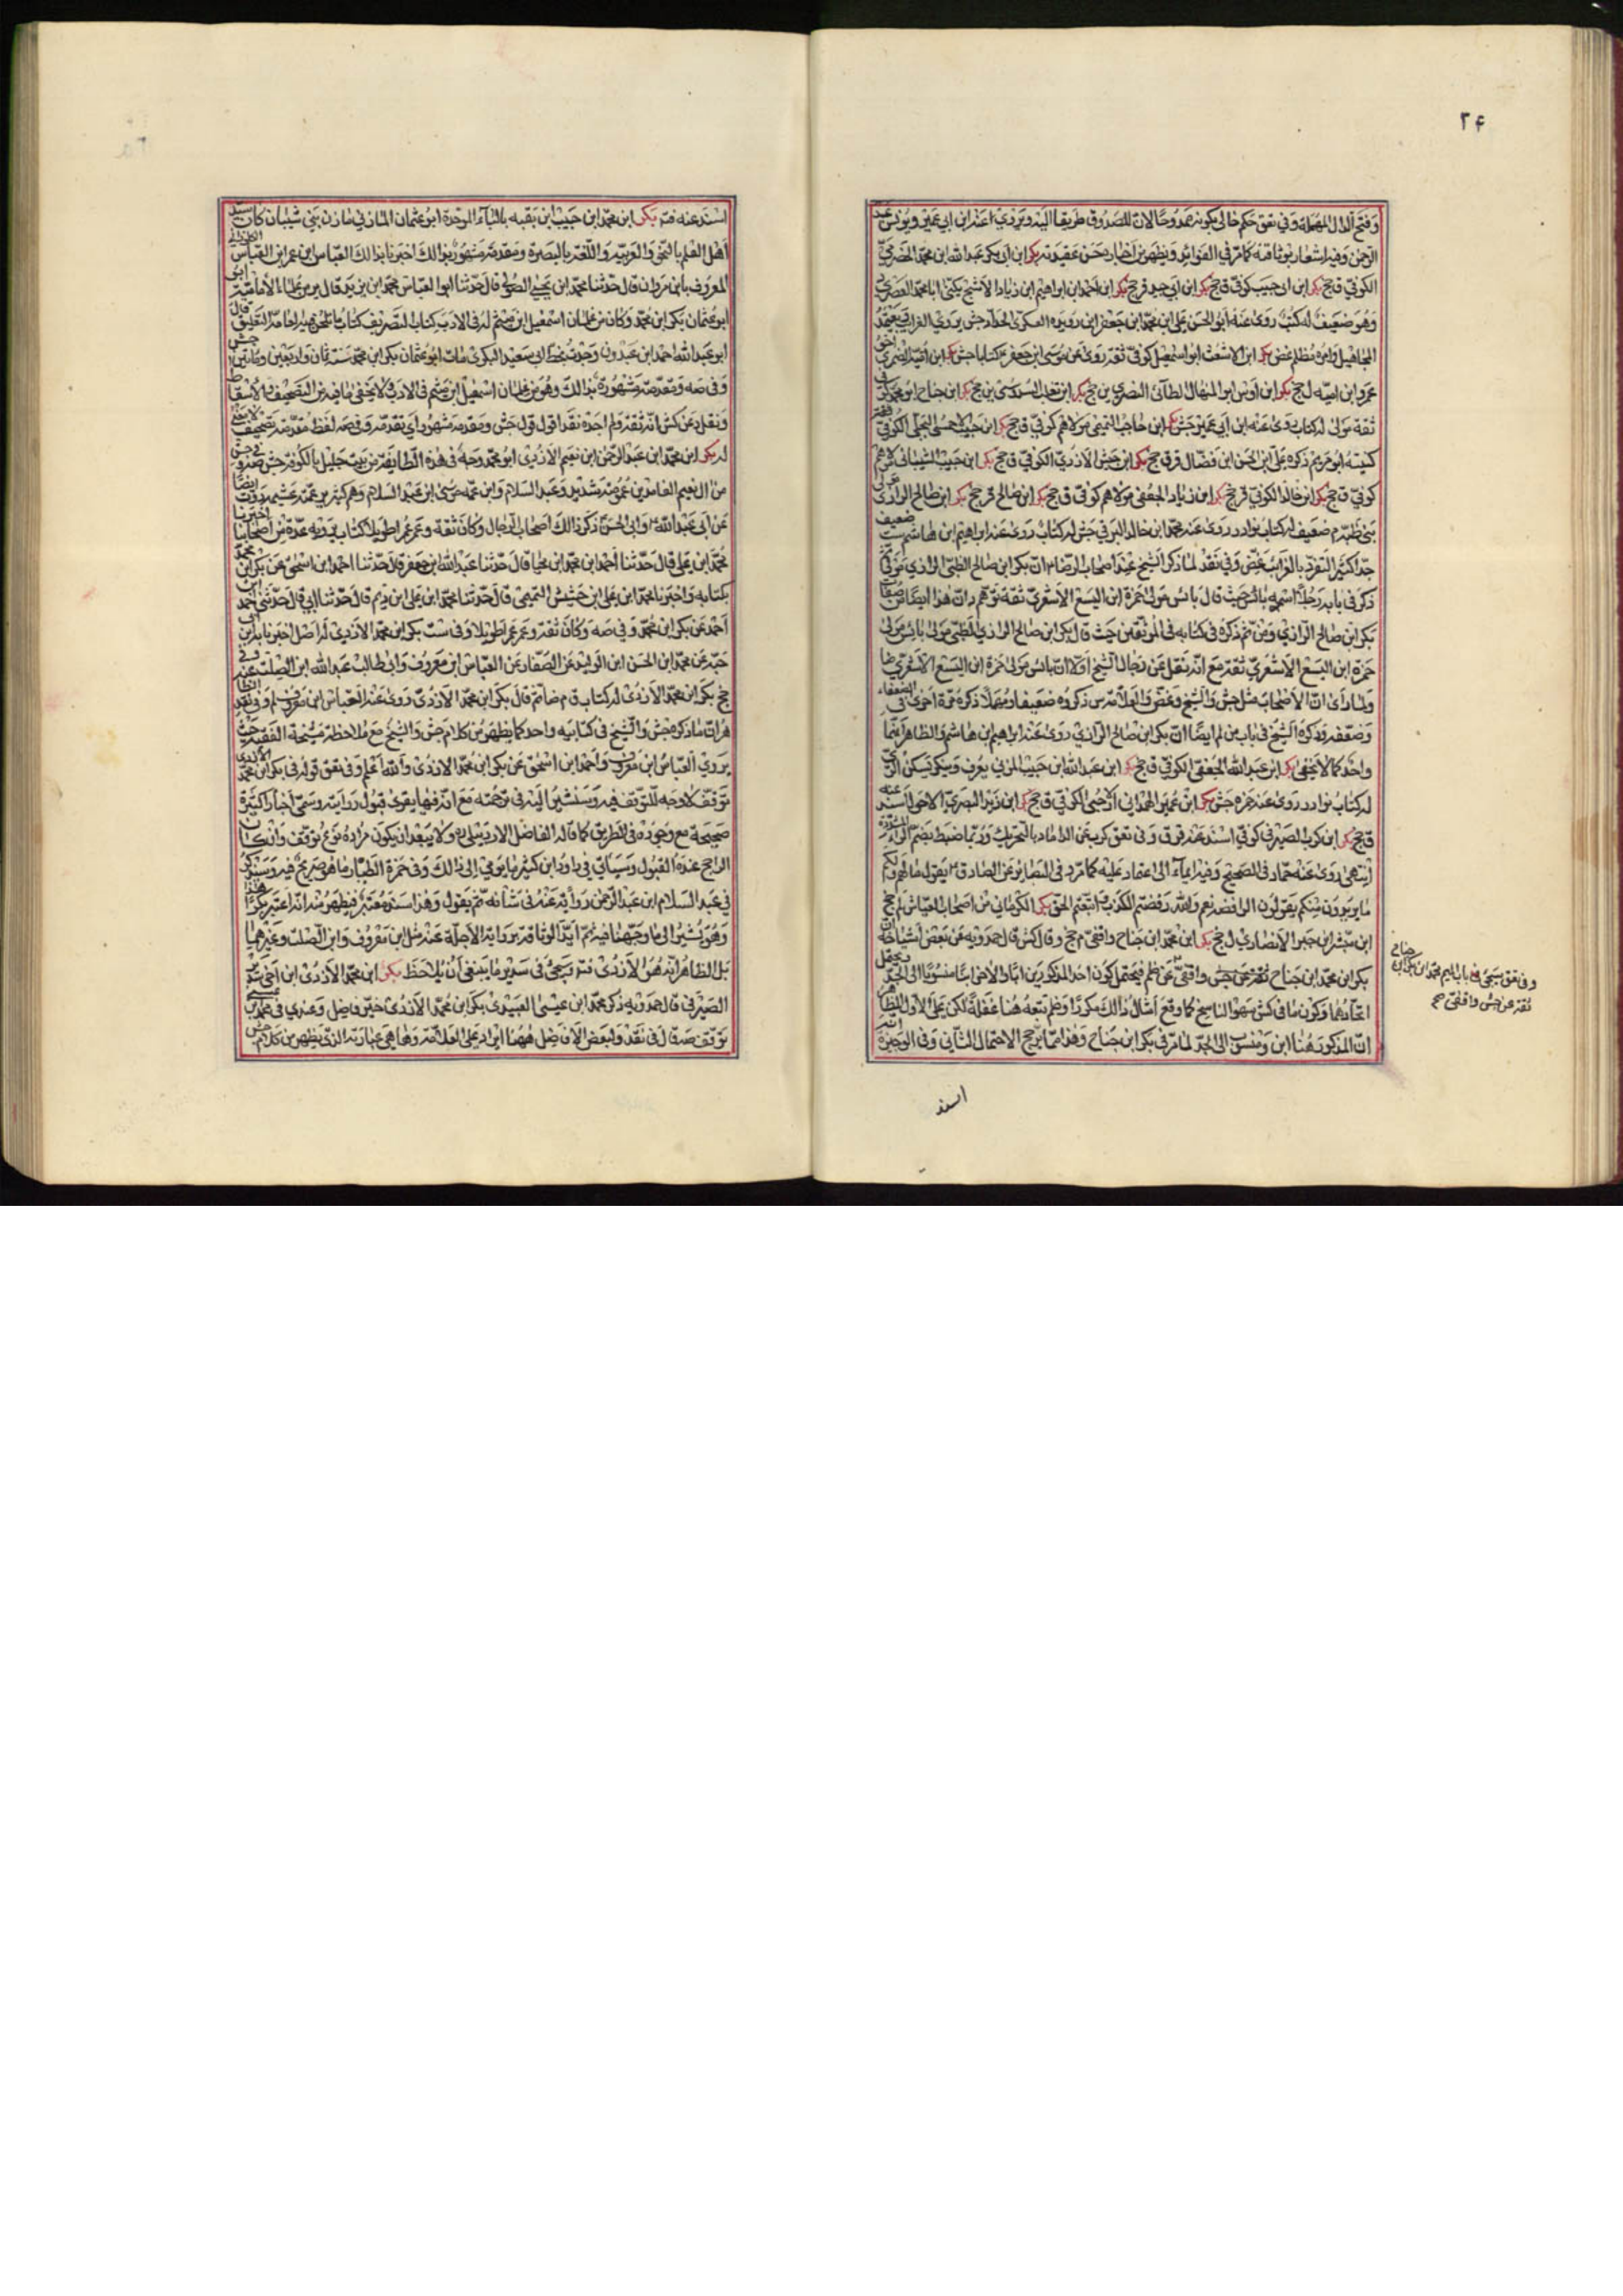 ٢۴
وفتح الدال المهملة وفي تعق حكم خالي بكونه ممدوحا لان للصدوق طريقا اليه ويروي عنه ابن ابي عمير ويونس
الرحمن وفيه اشعار بوثاقته كما مر في الفوائد ويظهر من اخباره حسن عقيدته بكر ابن ابي بكر عبد الله ابن محمد الحضرمي
الكوفي ق جخ بكر ابن ابي حبيب كوفي ق جخ بكر ابن احمد ابن ابراهيم ابن زياد الاشج يكنى ابا محمد العصري
وهو ضعيف له كتب روى عنه ابو الحسن علي ابن محمد ابن جعفر ابن رويده العسكري الحداد جش يروي الغرائب
المجاهيل وامره مظلم غض بكر ابن الاشعث ابو اسمعيل كوفي ثقة روى عن موسى ابن جعفر ع كتابا جش
عمرو ابن امية ل جخ بكر ابن اوس ابو المنهال الطائي البصري ين جخ بكر ابن تغلب السدوسي ين جخ بكر ابن جناح ابو محمد كوفي
ثقة مولى له كتاب روى عنه ابن ابي عمير جش بكر ابن حاجب التميمي مولاهم كوفي ق جخ بكر ابن حبيب الاحمسي البجلي الكوفي
كنيته ابو مريم ذكره علي ابن الحسن ابن فضال قر ق جخ بكر ابن حبش الازدي الكوفي ق جخ بكر ابن حبيب الشيباني مولاهم
كوفي ق جخ بكر ابن خالد الكوفي قر جخ بكر ابن زياد الجعفي مولاهم كوفي ق جخ بكر ابن صالح قر جخ بكر ابن صالح الرازي
بني ضبة م ضعيف له كتاب نوادر روى عنه محمد ابن خالد البرقي جش له كتاب روى عنه ابراهيم ابن هاشم ست
جدا كثير التفرد بالغرائب غض وفي نقد لما ذكر الشيخ عند اصحاب الرضا ان بكر ابن صالح الضبي الرازي مولى
ذكر في بابه رجلا اسمه بائس حيث قال بائس مولى حمزة ابن اليسع الاشعري ثقة توهم د ان هذا ايضا من
بكر ابن صالح الرازي ومن ثم ذكره في كتابه في الموثقين حيث قال بكر ابن صالح الرازي الضبي مولى بائس مولى
حمزة ابن اليسع الاشعري ثقة مع انه نقل عن رجال الشيخ اولا ان بائس مولى حمزة ابن اليسع الاشعري
ولما رأى ان الاصحاب مثل جش والشيخ وغض والعلامة س ذكروه ضعيفا ومهملا ذكره مرة اخرى في الضعفاء
وضعفه وذكره الشيخ في باب من لم ايضا ان بكر ابن صالح الرازي روى عنه ابراهيم ابن هاشم والظاهر انهما
واحد كما لا يخفى بكر ابن عبد الله الجعفي الكوفي ق جخ بكر ابن عبد الله ابن حبيب المزني يعرف وينكر يسكن الري
له كتاب نوادر روى عنه حمزة جش بكر ابن عمير الهمداني الارحبي الكوفي ق جخ بكر ابن زبر البصري الاحول اسند عنه
ق جخ بكر ابن كرب الصيرفي كوفي اسند عنه قر ق وفي تعق كرب عن الداماد بالتحريك وربما ضبط بضم الراء
انتهى روى عنه حماد في الصحيح وفيه ايماء الى اعتماد عليه كما مر وفي البصائر عن الصادق ع يقول ما لهم ولكم
ما يريدون منكم يقولون الرافضة نعم والله رفضتم الكذب واتبعتم الحق بكر الكرماني من اصحاب العياشي لم جخ
ابن مبشر ابن جبر الانصاري ل جخ بكر ابن محمد ابن جناح واقفي م جخ وقال كش قال حمدويه عن بعض اشياخه ان
بكر ابن محمد ابن جناح ثقة عن جش واقفي عن ظم فيحتمل كون احد المذكورين ابا والاخر ابنا منسوبا الى الجد
اتحادهما وكون ما في كش سهو الناسخ كما وقع امثال ذلك مكررا وظم تبعه هنا غفلة لكن على الاول
ان المذكور هنا ابن ومنسوب الى الجد لما مر في بكر ابن جناح وهذا مما يرجح الاحتمال الثاني وفي الوجيزة
وفي تعق سيجئ في باب الميم محمد ابن بكر ابن جناح
ثقة عن جش واقفي جخ
اسند
اسند عنه قر بكر ابن محمد ابن حبيب ابن بقية بالباء الموحدة ابو عثمان المازني مازن بني شيبان كان سيد
اهل العلم بالنحو والعربية واللغة بالبصرة ومقدمته مشهورة بذلك اخبرنا بذلك العباس ابن عمر ابن العباس
المعروف بابن مروان قال حدثنا محمد ابن يحيى الصولي قال حدثنا ابو العباس محمد ابن يزيد قال ومن علماء الامامية
ابو عثمان بكر ابن محمد وكان من غلمان اسمعيل ابن ميثم له في الادب كتاب التصريف كتاب ما يلحن فيه العامة التعليق
ابو عبد الله احمد ابن عبدون وجدت بخط ابي سعيد السكري مات ابو عثمان بكر ابن محمد سنة ثمان واربعين ومائتين
وفي صه ومقدمته مشهورة بذلك وهو من غلمان اسمعيل ابن ميثم في الادب ولا يخفى ما فيه من التصحيف والاسقاط
ونقل د عن كش انه ثقة ولم اجده نقد اقول قول جش ومقدمته مشهورة اي تقدمه وفي صه لفظ مقدمته تصحيف
له بكر ابن محمد ابن عبد الرحمن ابن نعيم الازدي ابو محمد وجه في هذه الطايفة من بيت جليل بالكوفة جش صه
من ال نعيم الغامدين عمومته شديد وعبد السلام وابن عمه موسى ابن عبد السلام وهم كثيرون عمته غنيمة روت
عن ابي عبد الله وابي الحسن ذكر ذلك اصحاب الرجال وكان ثقة وعمر عمرا طويلا له كتاب يرويه عدة من اصحابنا اخبرنا
محمد ابن علي قال حدثنا احمد ابن محمد ابن يحيى قال حدثنا عبد الله ابن جعفر قال حدثنا احمد ابن اسحق عن بكر ابن محمد
بكتابه واخبرنا محمد ابن علي ابن خشيش التميمي قال حدثنا محمد ابن علي ابن دحيم قال حدثنا ابي قال حدثني احمد ابن
احمد عن بكر ابن محمد وفي صه وكان ثقة وعمر عمرا طويلا وفي ست بكر ابن محمد الازدي له اصل اخبرنا به ابن
جيد عن محمد ابن الحسن ابن الوليد عن الصفار عن العباس ابن معروف وابي طالب عبد الله ابن الصلت عنه
جخ بكر ابن محمد الازدي له كتاب ق م ضا ثم قال بكر ابن محمد الازدي روى عنه العباس ابن معروف لم وفي نقد الظا
هر ان ما ذكره جش والشيخ في كتابيه واحد كما يظهر من كلام جش والشيخ مع ملاحظة مشيخة الفقيه حيث
يروي العباس ابن معروف واحمد ابن اسحق عن بكر ابن محمد الازدي والله اعلم وفي تعق قوله في بكر ابن محمد الازدي
توقف لا وجه للتوقف فيه وسنشير اليه في ترجمته مع انه فيها يقوى قبول روايته وسمى اخبارا كثيرة
صحيحة مع وجوده في الطريق كما قاله الفاضل الاردبيلي ره ولا يبعد ان يكون مراده نوع توقف وان كان
الراجح عنده القبول وسيأتي في داود ابن كثير ما يومي الى ذلك وفي حمزة الطيار ما هو صريح فيه وسنذكر
في عبد السلام ابن عبد الرحمن رواية عنه في شأنه ثم يقول وهذا سند معتبر فيظهر منه انه اعتبر بكرا هذا
وهو يشير الى ما وجهنا فيه ثم ايد الوثاقة برواية الاجلة عنه مثل ابن معروف وابن الصلت وغيرهما
بل الظاهر انه هو الازدي فتر وسيجئ في سدير ما ينبغي ان يلاحظ بكر ابن محمد الازدي ابن اخي سدير
الصيرفي قال حمدويه ذكر محمد ابن عيسى العبيدي بكر ابن محمد الازدي خير فاضل وعندي في محمد ابن عيسى
توقف صه قال في نقد ولبعض الافاضل ههنا ايراد على العلامة وها هي عبارته الذي يظهر من كلام جش